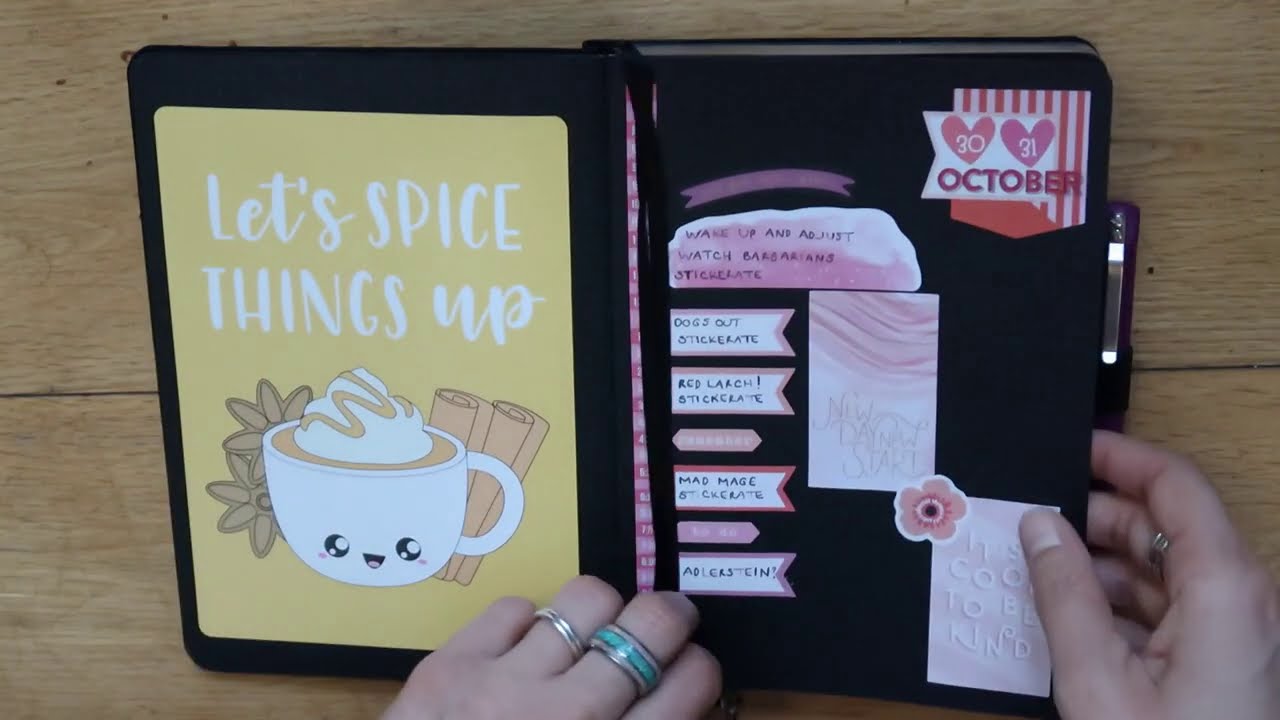 Let's SPICE
THINGS up
30 31
OCTOBER
WAKE UP AND ADJUST
WATCH BARBARIANS
STICKERATE
DOGS OUT
STICKERATE
RED LARCH!
STICKERATE
remember
MAD MAGE
STICKERATE
to do
ADLERSTEIN?
NEW
DAY NEW
START
IT'S
COOL
TO BE
KIND